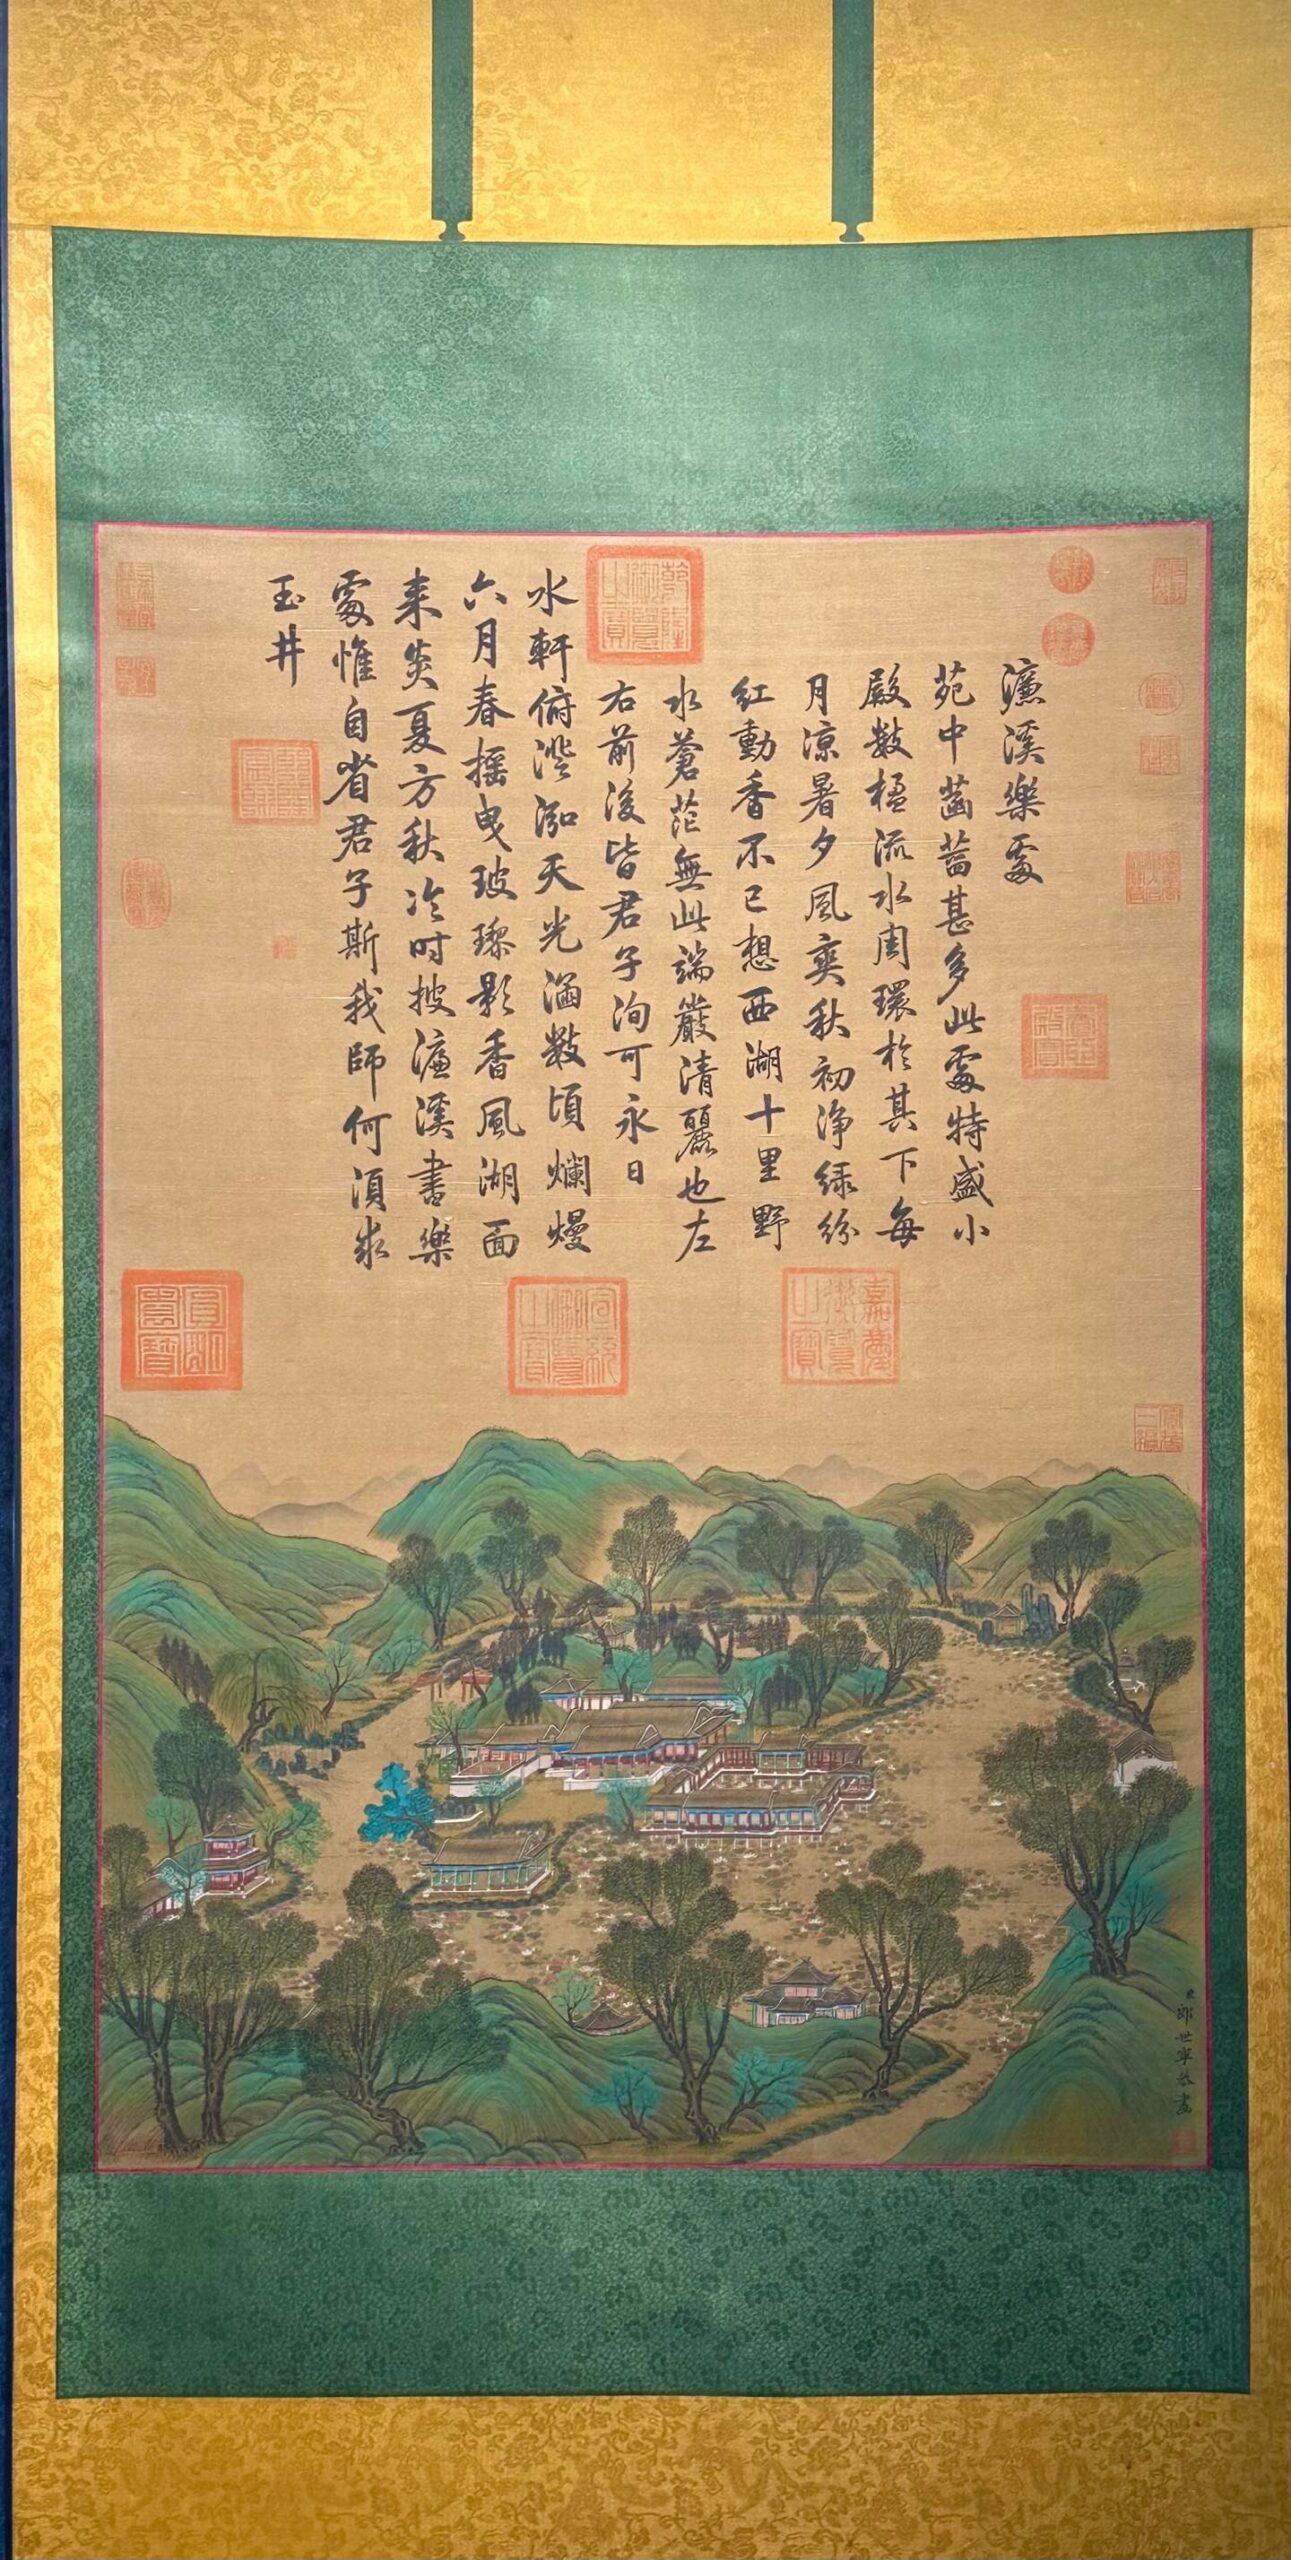 濂溪樂處
苑中菡萏甚多此處特盛小
殿數楹流水周環於其下每
月涼暑夕風爽秋初淨綠紛
紅動香不已想西湖十里野
水蒼茫無此端嚴清麗也左
右前後皆君子洵可永日
水軒俯澄泓天光涵數頃爛熳
六月春搖曳玻瓈影香風湖面
来炎夏方秋冷时披濂溪書樂
處惟自省君子斯我師何須求
玉井
乾隆御覽之寶
嘉慶御覽之寶
宣統御覽之寶
臣郎世寧恭畫